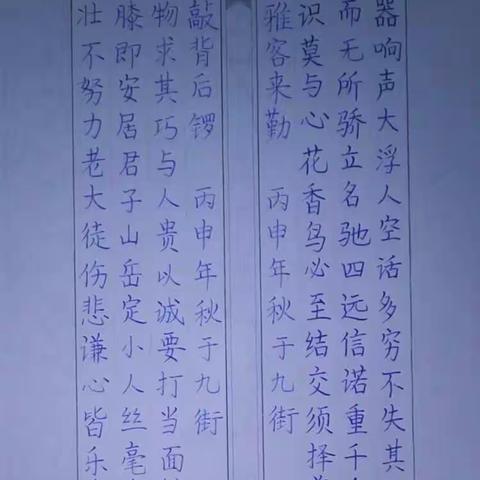 器响声大浮人空话多穷不失其
而无所骄立名驰四远信诺重千
识莫与心花香鸟必至结交须择
雅客来勤 丙申年秋于九街
敲背后锣 丙申年秋于九街
物求其巧与人贵以诚要打当面
膝即安居君子山岳定小人丝毫
壮不努力老大徒伤悲谦心皆乐